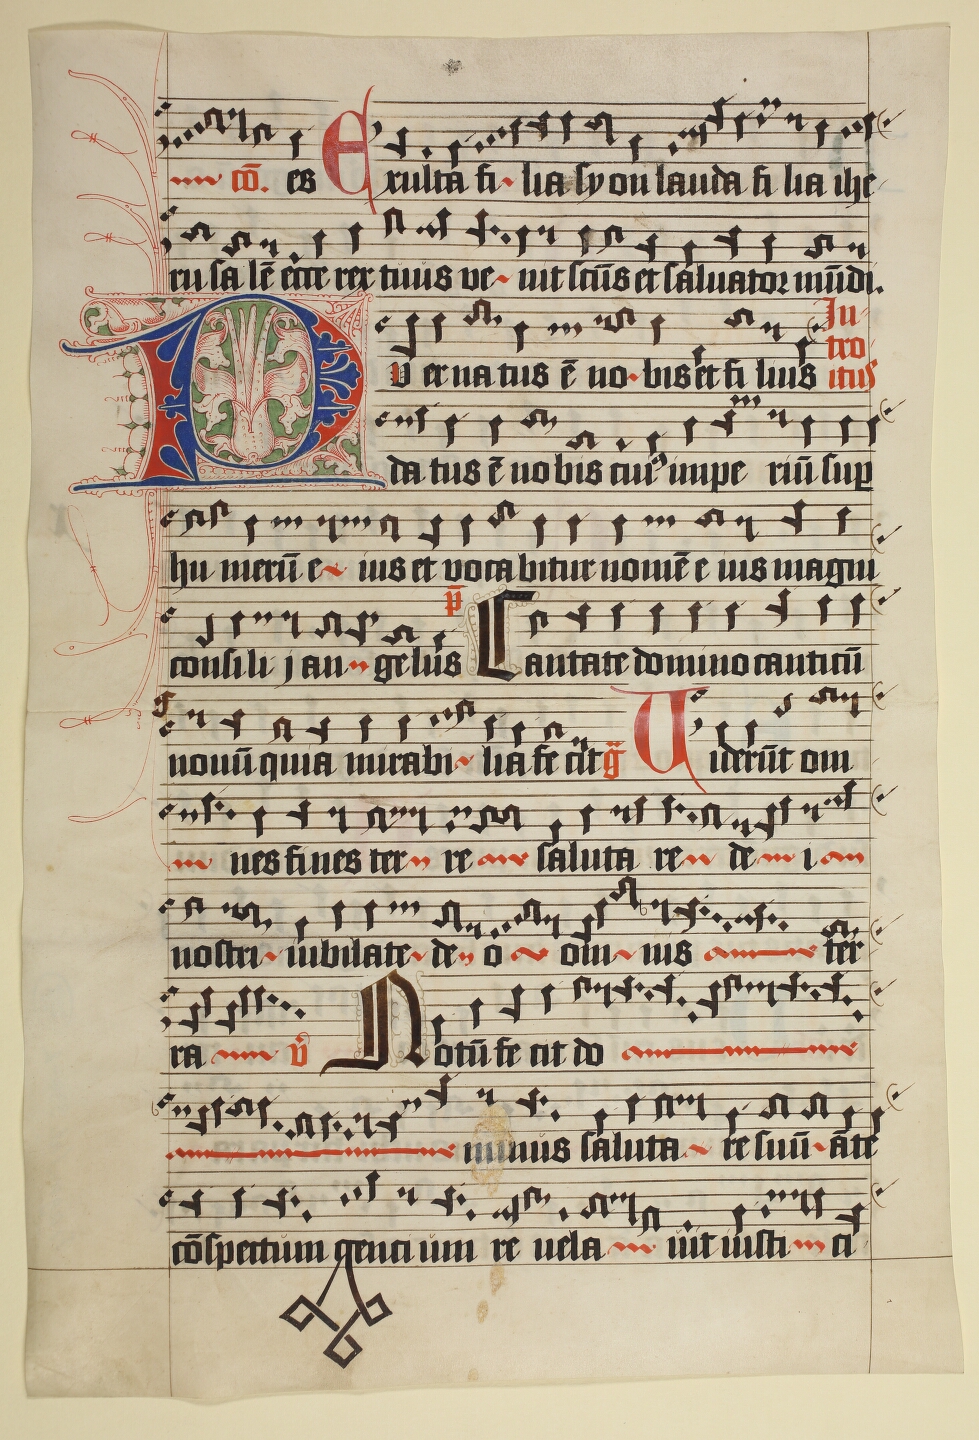 cō. es Exulta fi lia syon lauda fi lia ihe
ru sa lē ecce rex tuus ve nit scūs et saluator mūdi.
In
tro
itus
Puer natus ē no bis et fi lius
da tus ē no bis cui9 impe riū sup
hu merū e ius et vocabitur nomē e ius magni
consili j an gelus p̄ Cantate domino canticū
nouū quia mirabi lia fe cit ḡ Viderūt om
nes fines ter re saluta re de i
nostri iubilate de o om nis ter
ra v̄ Notū fe cit do
minus saluta re suū āte
cōspectum genci um re uela uit iusti ci